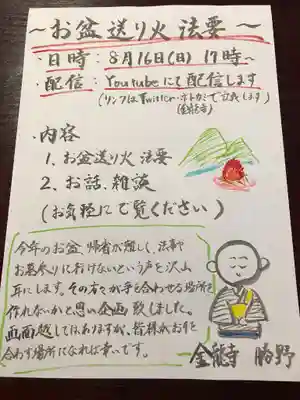 ～お盆送り火 法要～
・日時：8月16日(日) 17時～
・配信：Youtubeにて配信します
(リンクはTwitter・ホトカミで立義します)
(金龍寺)
・内容
1、お盆送り火 法要
2、お話、雑談
(お気軽にご覧ください)
今年のお盆、帰省が難しく、法事や
お墓参りに行けないという声を沢山
耳にします。その方々が手を合わせる場所を
作れないかと思い企画致しました。
画面越しではありますが、皆様がお手を
合わす場所になれば幸いです。
金龍寺 勝野